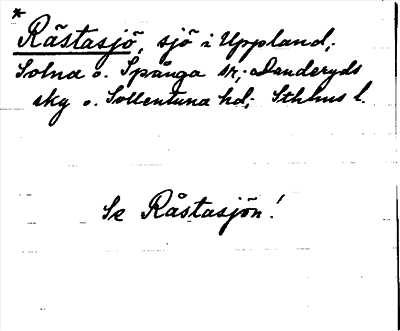 *
Råstasjö, sjö i Uppland;
Solna o. Spånga sr; Danderyds
skg o. Sollentuna hd; Sthlms l.
Se Råstasjön!